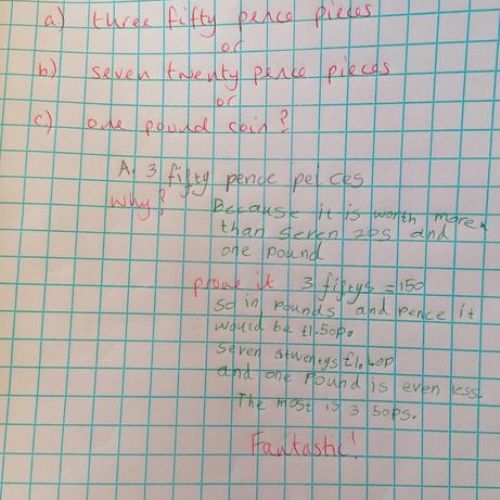 a) three fifty pence pieces
or
b) seven twenty pence pieces
or
c) one pound coin?
A. 3 fifty pence peices
Why? Because it is worth more
than seven 20s and
one pound
prove it 3 fiftys = 150
so in pounds and pence it
would be £1.50p.
seven twentys £1.40p
and one pound is even less.
The most is 3 50ps.
Fantastic!